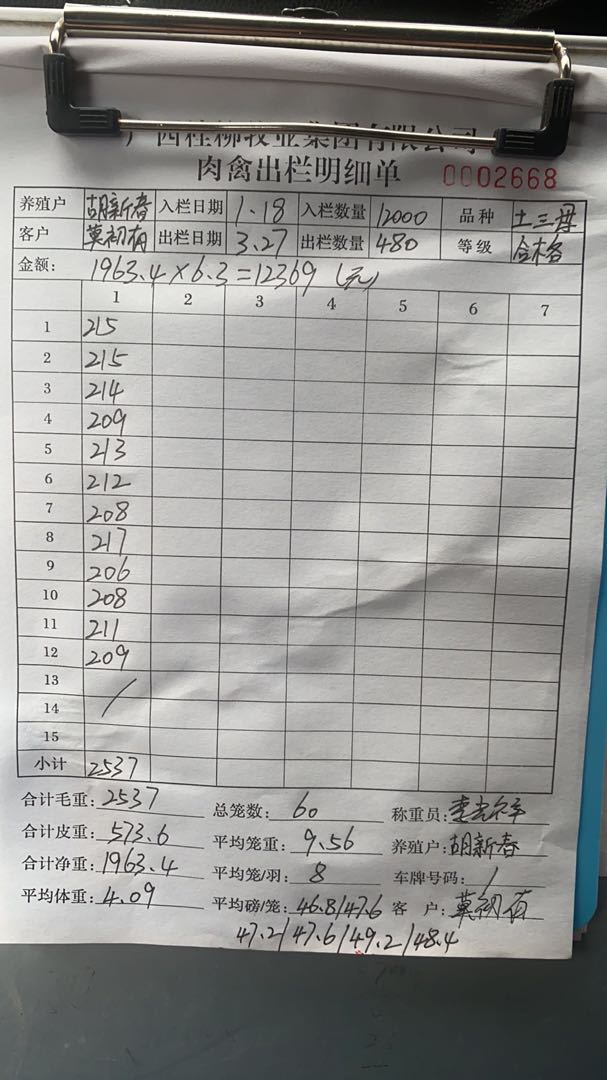 广西桂柳牧业集团有限公司
肉禽出栏明细单 0002668
养殖户 胡新春 入栏日期 1.18 入栏数量 12000 品种 土三母
客户 莫初有 出栏日期 3.27 出栏数量 480 等级 合格
金额: 1963.4×6.3=12369(元)
1 2 3 4 5 6 7
1 215
2 215
3 214
4 209
5 213
6 212
7 208
8 217
9 206
10 208
11 211
12 209
13
14 /
15
小计 2537
合计毛重: 2537 总笼数: 60 称重员:
合计皮重: 573.6 平均笼重: 9.56 养殖户: 胡新春
合计净重: 1963.4 平均笼/羽: 8 车牌号码: 1
平均体重: 4.09 平均磅/笼: 46.8/47.6 客 户: 莫初有
47.2/47.6/49.2/48.4